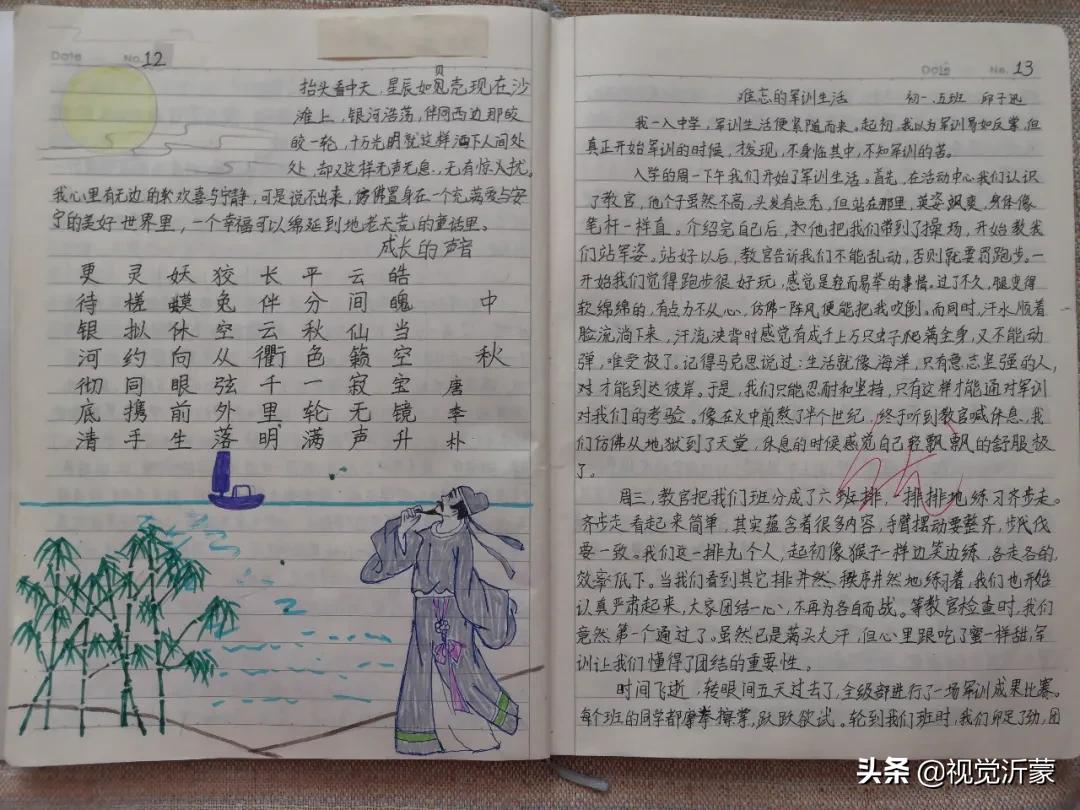 Date No. 12
抬头看中天,星辰如贝壳现在沙
滩上,银河浩荡,伴同西边那皎
皎一轮,十万光明就这样洒下人间处
处,却又这样无声无息,无有惊人扰。
我心里有无边的欢喜与宁静,可是说不出来,仿佛置身在一个充满爱与安
宁的美好世界里,一个幸福可以绵延到地老天荒的童话里。
成长的声音
中秋
唐李朴
皓魄当空宝镜升
云间仙籁寂无声
平分秋色一轮满
长伴云衢千里明
狡兔空从弦外落
妖蟆休向眼前生
灵槎拟约同携手
更待银河彻底清
Date No. 13
难忘的军训生活 初一.五班 邱子
我一入中学,军训生活便紧随而来。起初,我以为军训易如反掌,但
真正开始军训的时候,才发现,不身临其中,不知军训的苦。
入学的周一下午我们开始了军训生活。首先,在活动中心我们认识
了教官,他个子虽然不高,头发有点秃,但站在那里,英姿飒爽,身体像
笔杆一样直。介绍完自己后,他把我们带到了操场,开始教我
们站军姿。站好以后,教官告诉我们不能乱动,否则就要罚跑步。一
开始我们觉得跑步很好玩,感觉是轻而易举的事情。过了不久,腿变得
软绵绵的,有点力不从心,仿佛一阵风便能把我吹倒。而同时,汗水顺着
脸流淌下来,汗流浃背时感觉有成千上万只虫子爬满全身,又不能动
弹,难受极了。记得马克思说过:生活就像海洋,只有意志坚强的人,
才能到达彼岸。于是,我们只能忍耐和坚持,只有这样才能通对军训
对我们的考验。像在火中煎熬了半个世纪,终于听到教官喊休息,我
们仿佛从地狱到了天堂,休息的时候感觉自己轻飘飘的舒服极
了。
周三,教官把我们班分成了六班排,一排排地练习齐步走。
齐步走看起来简单,其实蕴含着很多内容,手臂摆动要整齐,步伐
要一致。我们这一排九个人,起初像猴子一样边笑边练,各走各的,
效率低下。当我们看到其它排井然秩序井然地练习着,我们也开始
认真严肃起来,大家团结一心,不再为各自而战。等教官检查时,我们
竟然第一个通过了。虽然已是满头大汗,但心里跟吃了蜜一样甜,军
训让我们懂得了团结的重要性。
时间飞逝,转眼间五天过去了,全级部进行了一场军训成果比赛。
每个班的同学都摩拳擦掌,跃跃欲试。轮到我们班时,我们卯足了劲,团
优
头条 @视觉沂蒙